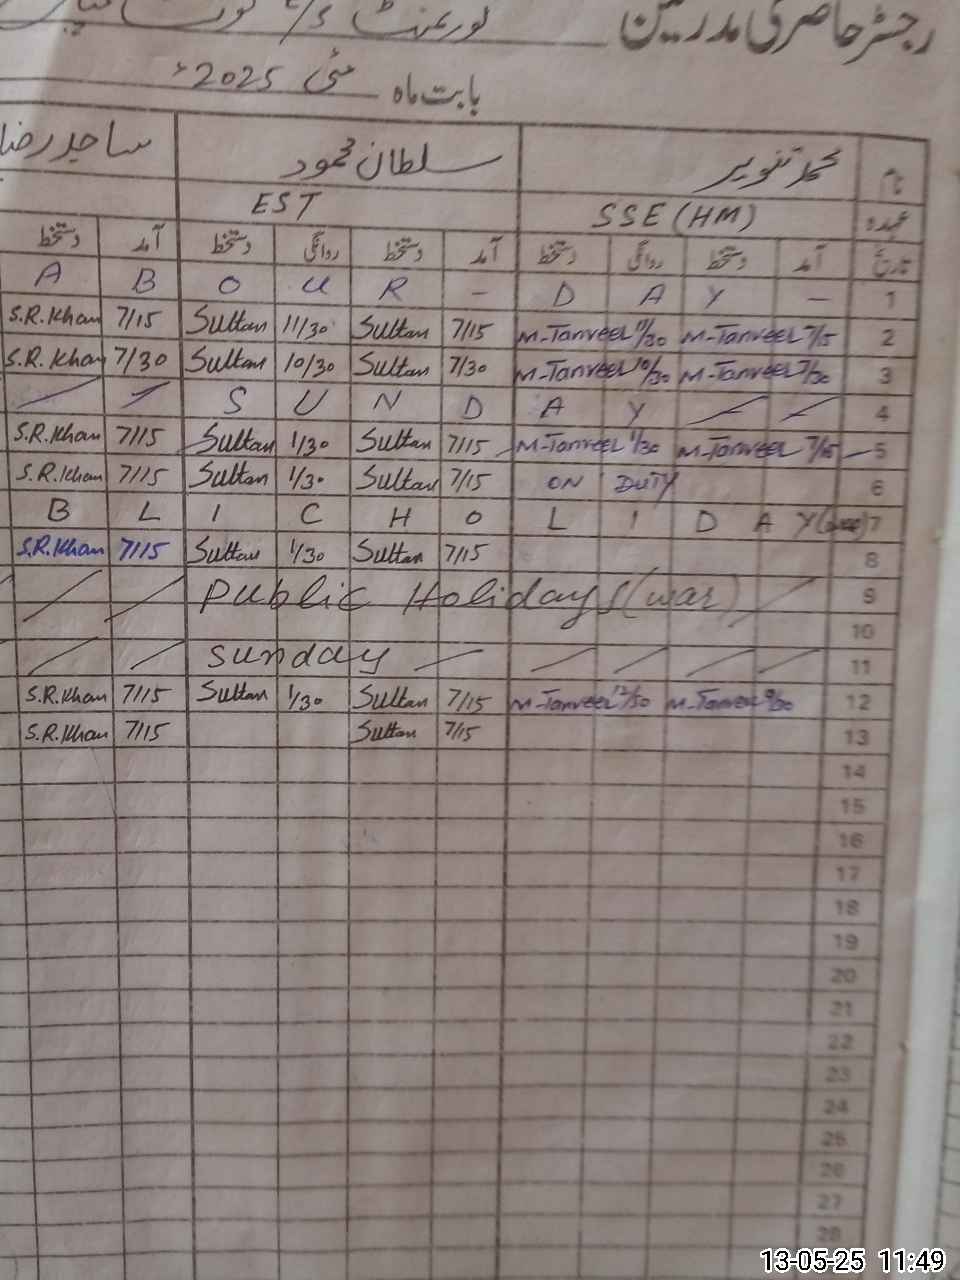 رجسٹر حاضری مدرسین گورنمنٹ
بابت ماہ مئی 2025ء
نام محمد تنویر سلطان محمود ساجد رضا
عہدہ SSE (HM) EST
تاریخ آمد دستخط روانگی دستخط آمد دستخط روانگی دستخط آمد دستخط
A B O U R - D A Y - 1
S.R.Khan 7/15 Sultan 11/30 Sultan 7/15 M-Tanveel 11/30 M-Tanveel 7/15 2
S.R.Khan 7/30 Sultan 10/30 Sultan 7/30 M-Tanveel 10/30 M-Tanveel 7/30 3
S U N D A Y 4
S.R.Khan 7/15 Sultan 1/30 Sultan 7/15 M-Tanveel 1/30 M-Tanveel 7/15 5
S.R.Khan 7/15 Sultan 1/30 Sultan 7/15 ON DUTY 6
B L I C H O L I D A Y (war) 7
S.R.Khan 7/15 Sultan 1/30 Sultan 7/15 8
Public Holidays (war) 9
10
Sunday 11
S.R.Khan 7/15 Sultan 1/30 Sultan 7/15 M-Tanveel 12/30 M-Tanveel 9/30 12
S.R.Khan 7/15 Sultan 7/15 13
14
15
16
17
18
19
20
21
22
23
24
25
26
27
28
13-05-25 11:49